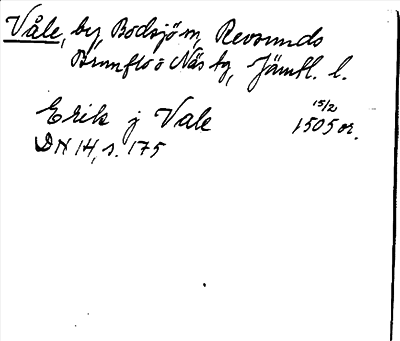 Våle, by, Bodsjö sn, Revsunds
Brunflo o Näs tg, Jämtl. l.
15/2
Erik j Vale 1505 or.
DN 14, s. 175